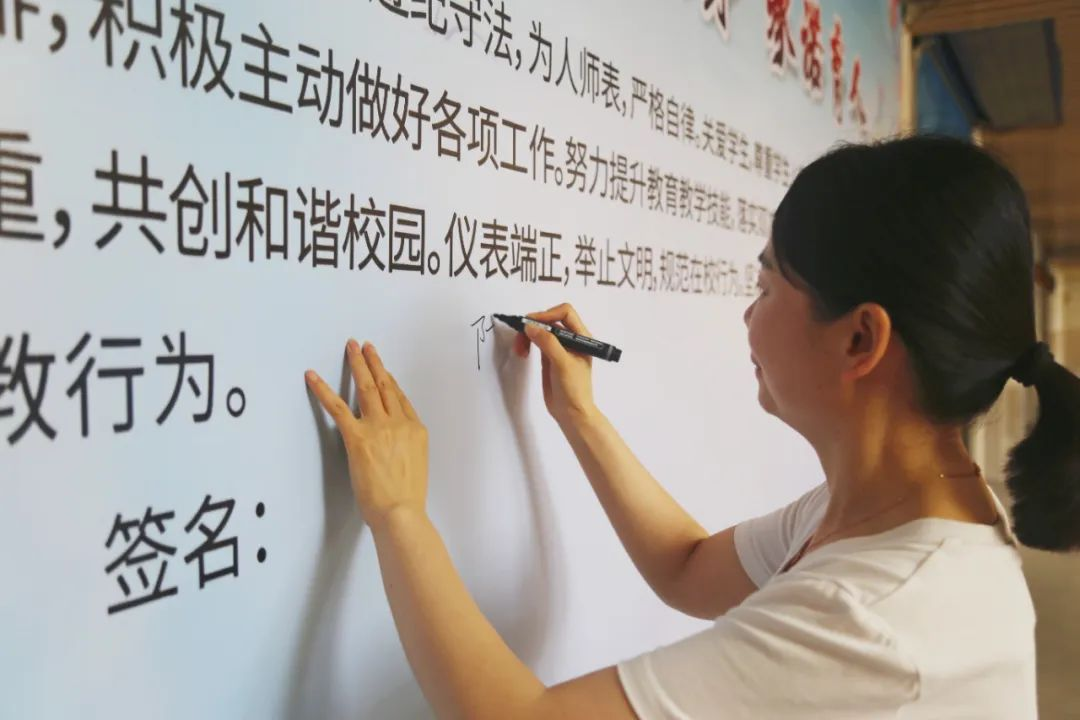 积极主动做好各项工作。努力提升教育教学技能,落实
纪守法,为人师表,严格自律。关爱学生,尊重学生
重,共创和谐校园。仪表端正,举止文明,规范在校行为。坚
教行为。
签名: